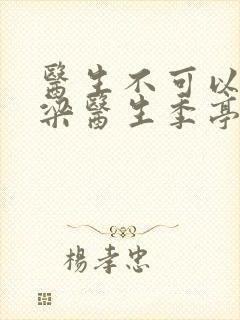 醫生不可以
梁醫生季亭
楊孝忠